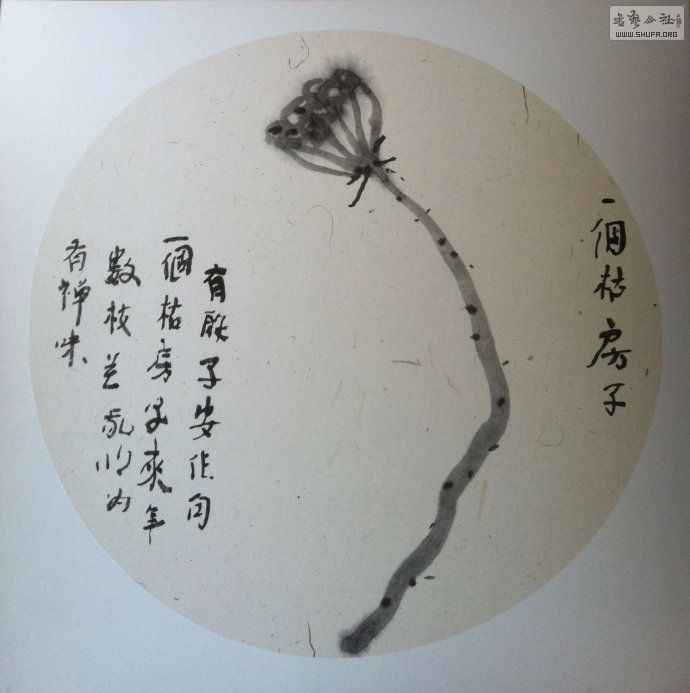 书艺公社
WWW.SHUFA.ORG
一個枯房子
有 子安 句
一個枯房子來年
數枝 亂 为
有禅味